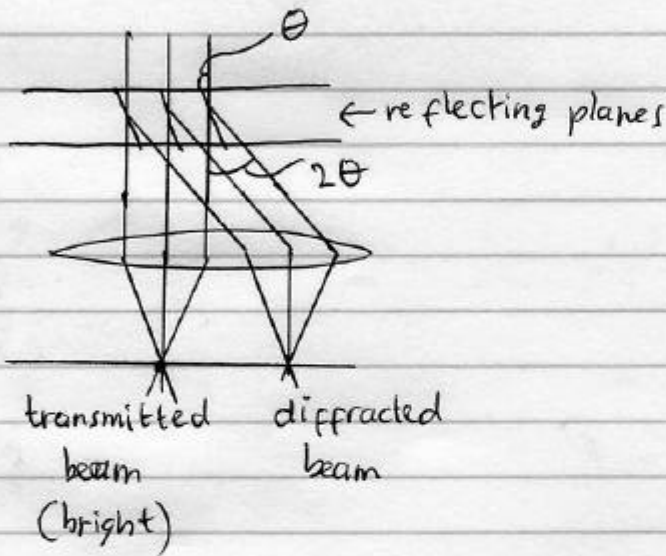 θ
← reflecting planes
2θ
transmitted
beam
(bright)
diffracted
beam